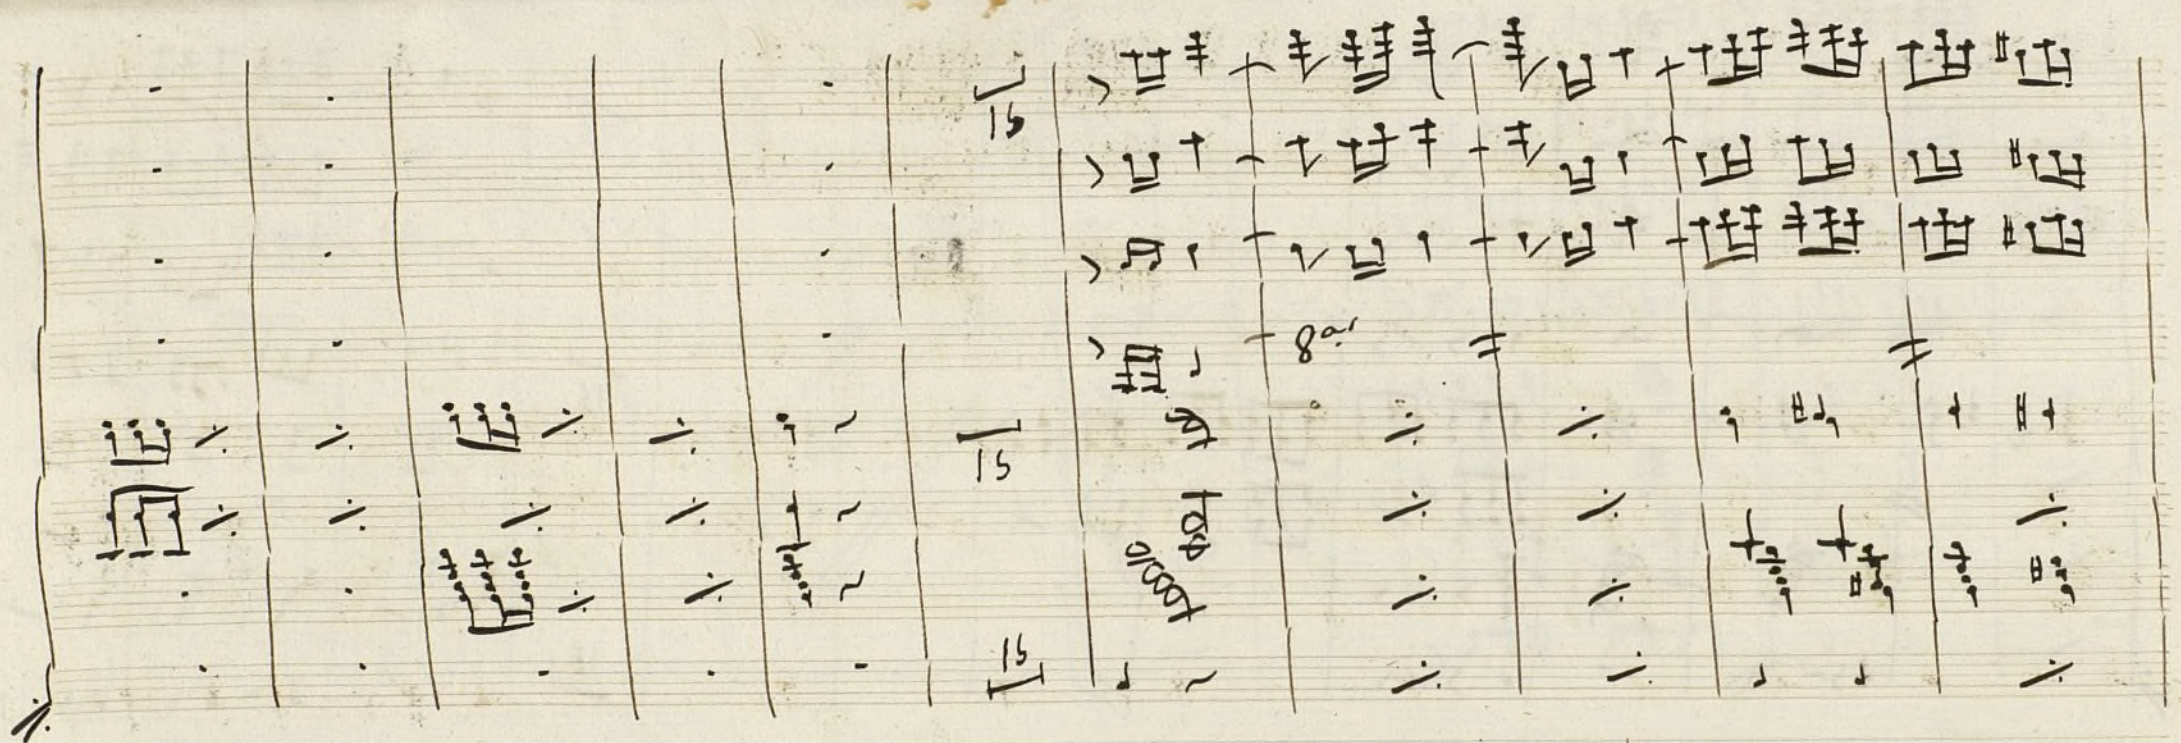 15
8a
15
15